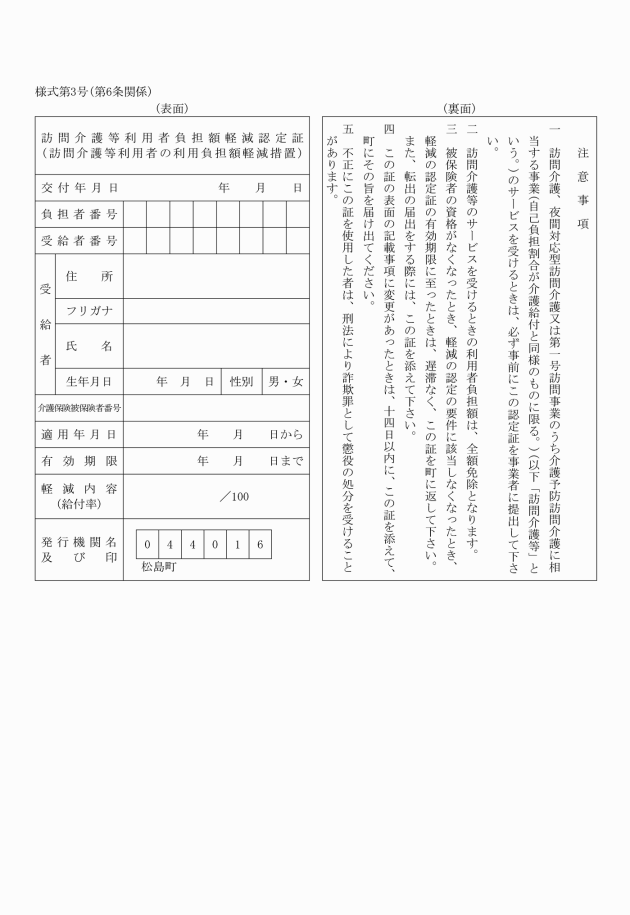 様式第3号(第6条関係)
(表面)
訪問介護等利用者負担額軽減認定証
(訪問介護等利用者の利用負担額軽減措置)
交付年月日 年 月 日
負担者番号
受給者番号
受給者
住 所
フリガナ
氏 名
生年月日 年 月 日 性別 男・女
介護保険被保険者番号
適用年月日 年 月 日から
有効期限 年 月 日まで
軽減内容
(給付率)
/100
発行機関名
及び印
0 4 4 0 1 6
松島町
(裏面)
注意事項
一 訪問介護、夜間対応型訪問介護又は第一号訪問事業のうち介護予防訪問介護に相
当する事業(自己負担割合が介護給付と同様のものに限る。)(以下「訪問介護等」と
いう。)のサービスを受けるときは、必ず事前にこの認定証を事業者に提出して下さ
い。
二 訪問介護等のサービスを受けるときの利用者負担額は、全額免除となります。
三 被保険者の資格がなくなったとき、軽減の認定の要件に該当しなくなったとき、
軽減の認定証の有効期限に至ったときは、遅滞なく、この証を町に返して下さい。
また、転出の届出をする際には、この証を添えて下さい。
四 この証の表面の記載事項に変更があったときは、十四日以内に、この証を添えて、
町にその旨を届け出てください。
五 不正にこの証を使用した者は、刑法により詐欺罪として懲役の処分を受けること
があります。